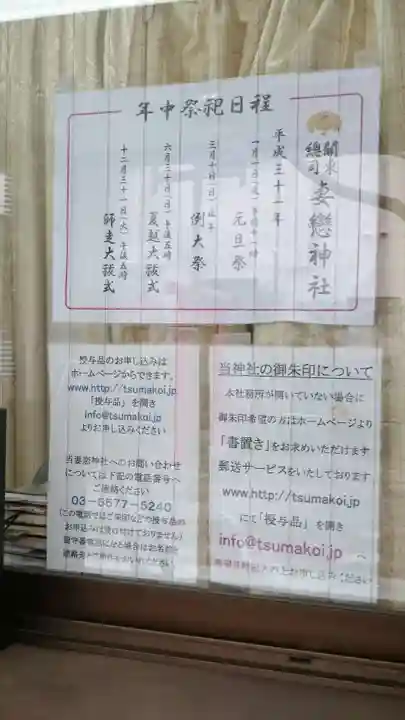 年中祭祀日程
關東
總司
妻戀神社
平成三十一年
元旦祭
三月十日(日)正午
例大祭
六月三十日(日)午後五時
夏越大祓式
十二月三十一日(火)午後五時
師走大祓式
授与品のお申し込みは
ホームページからできます。
www.http://tsumakoi.jp
「授与品」を開き
info@tsumakoi.jp
よりお申し込みください
当妻恋神社へのお問い合わせ
については下記の電話番号へ
ご連絡ください
03-5577-5240
(この電話ではご朱印などの授与品の
お申込みは受け付けておりません)
留守番電話になった場合はお名前と
当神社の御朱印について
本社務所が開いていない場合に
御朱印希望の方はホームページより
「書置き」をお求めいただけます
郵送サービスをいたしております
www.http://tsumakoi.jp
にて「授与品」を開き
info@tsumakoi.jp へ